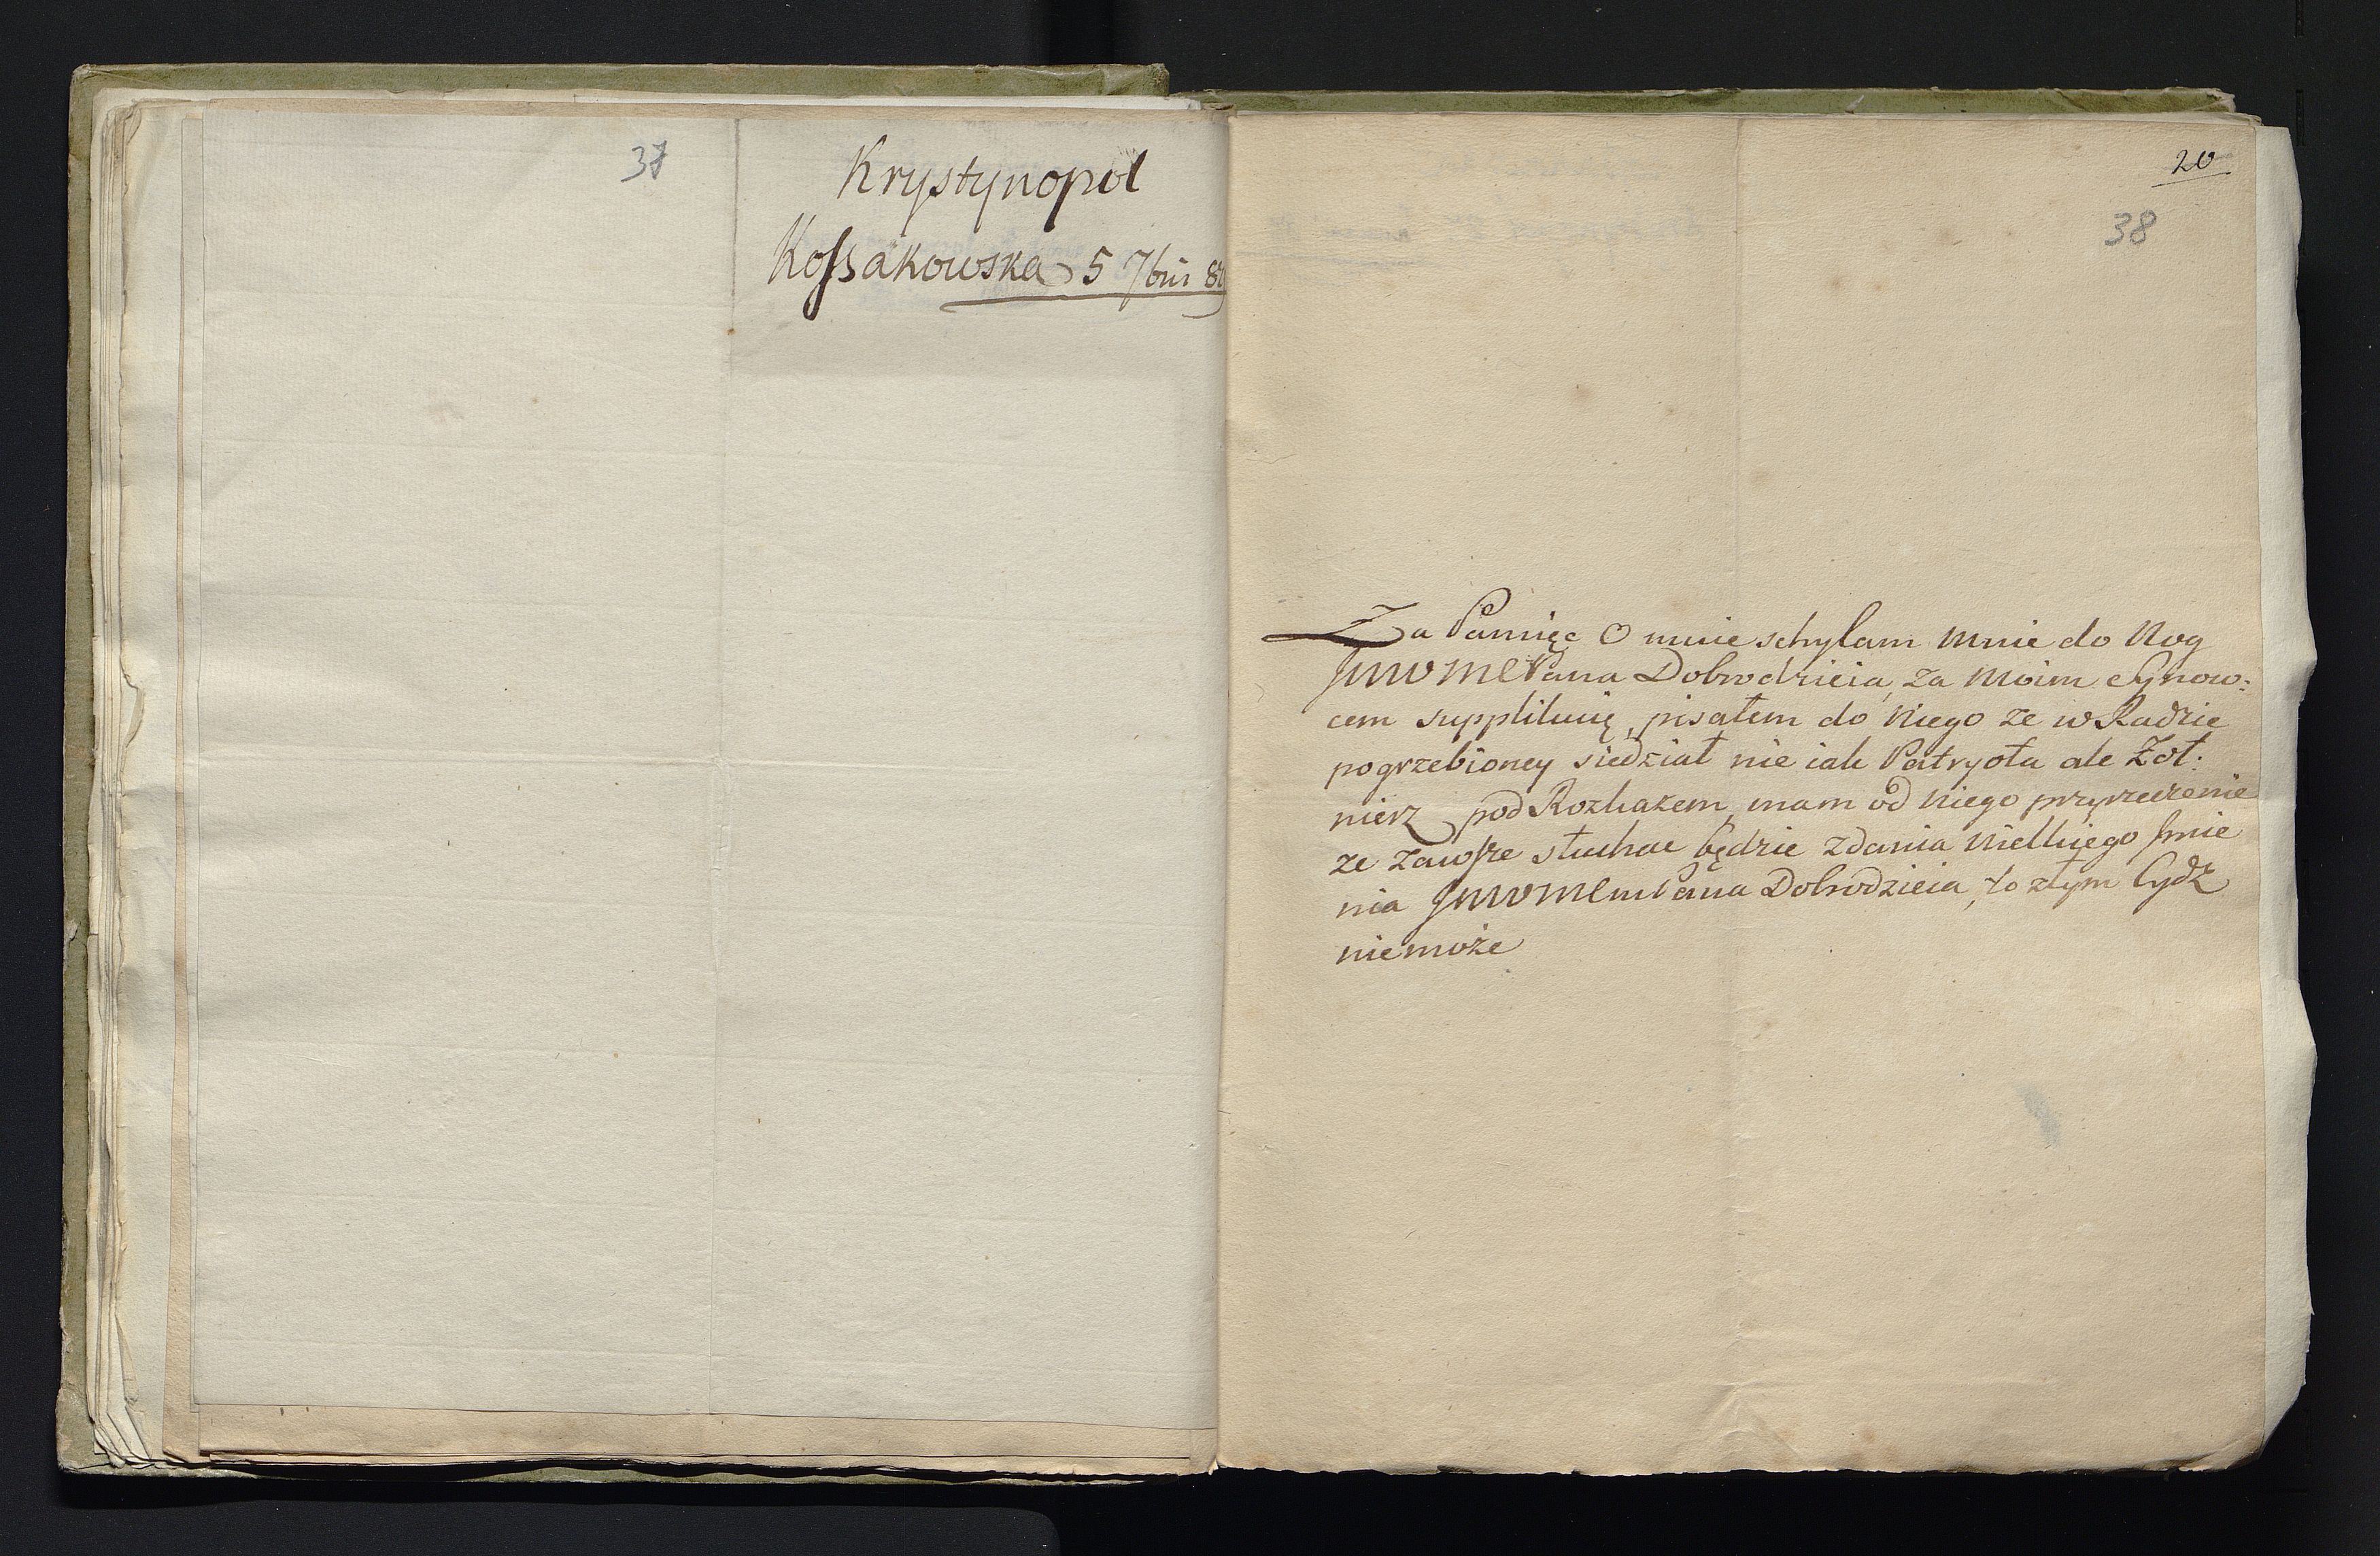 37
Krystynopol
Kossakowska 5 7bris 89
20
38
Za Pamięc O mnie schylam mnie do Nog
JWWMCPana Dobrodzieia, za Moim Synow:
cem supplikuię, pisałem do Niego ze w Radzie
pogrzebioney siedział nie iak Patryota ale Zoł:
nierz pod Rozkazem, mam od Niego przyrzeczenie
ze zawsze słuchac będzie zdania Wielkiego Jmie
nia JWWMCmPana Dobrodzieia, to złym bydz
niemoże